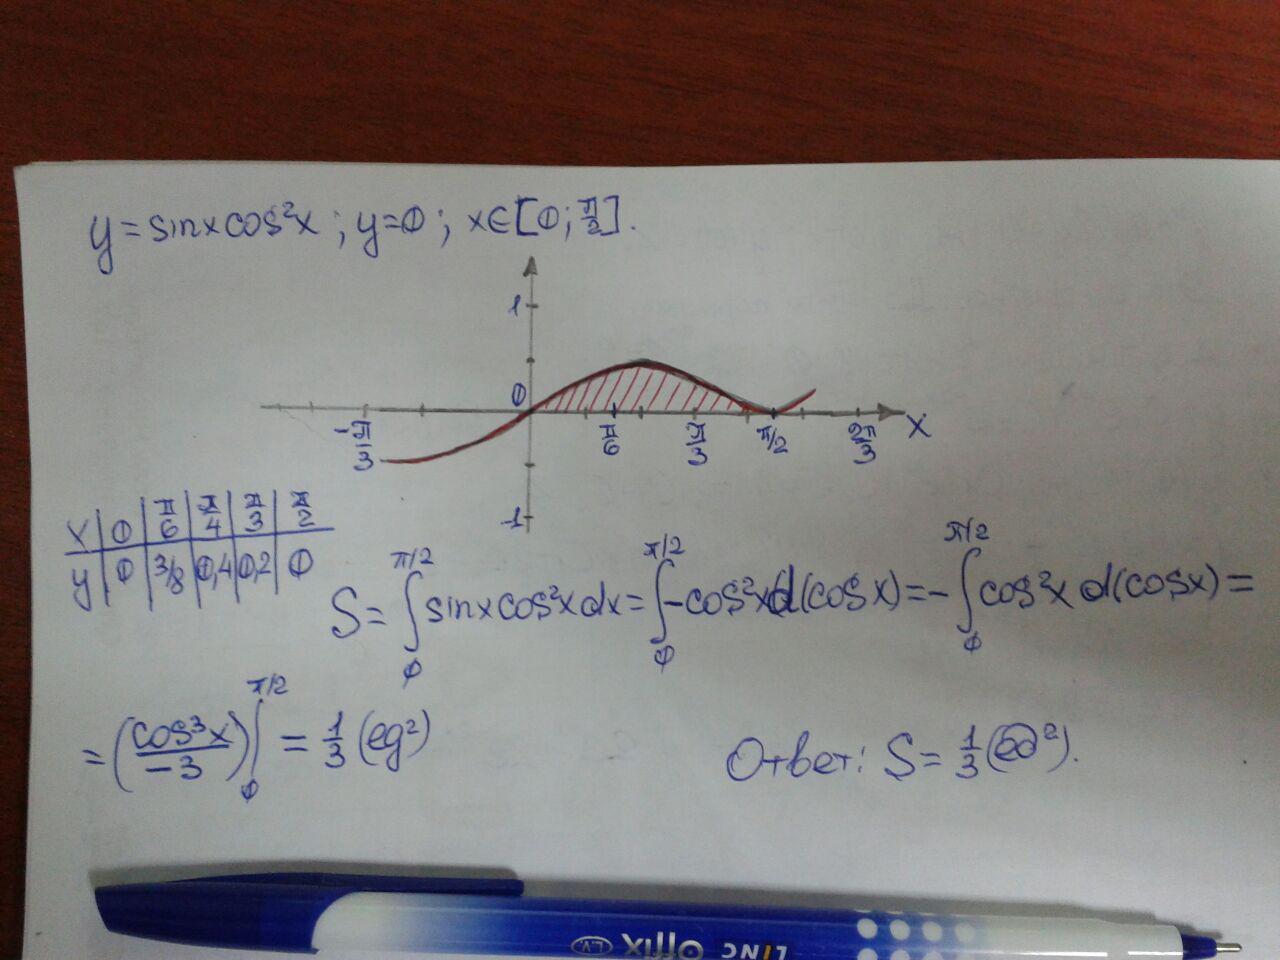 y = sinxcos²x ; y=0 ; x∈[0; π/2].
1
0
-π/3 π/6 π/3 π/2 2π/3 x
-1
x | 0 | π/6 | π/4 | π/3 | π/2
y | 0 | 3/8 | 0,4 | 0,2 | 0
S = ∫₀^(π/2) sinxcos²xdx = ∫₀^(π/2) -cos²xd(cosx) = -∫₀^(π/2) cos²x d(cosx) =
= (cos³x/-3)|₀^(π/2) = 1/3 (eg²)
Ответ: S = 1/3 (ед²).
LINC Ollix L.V.